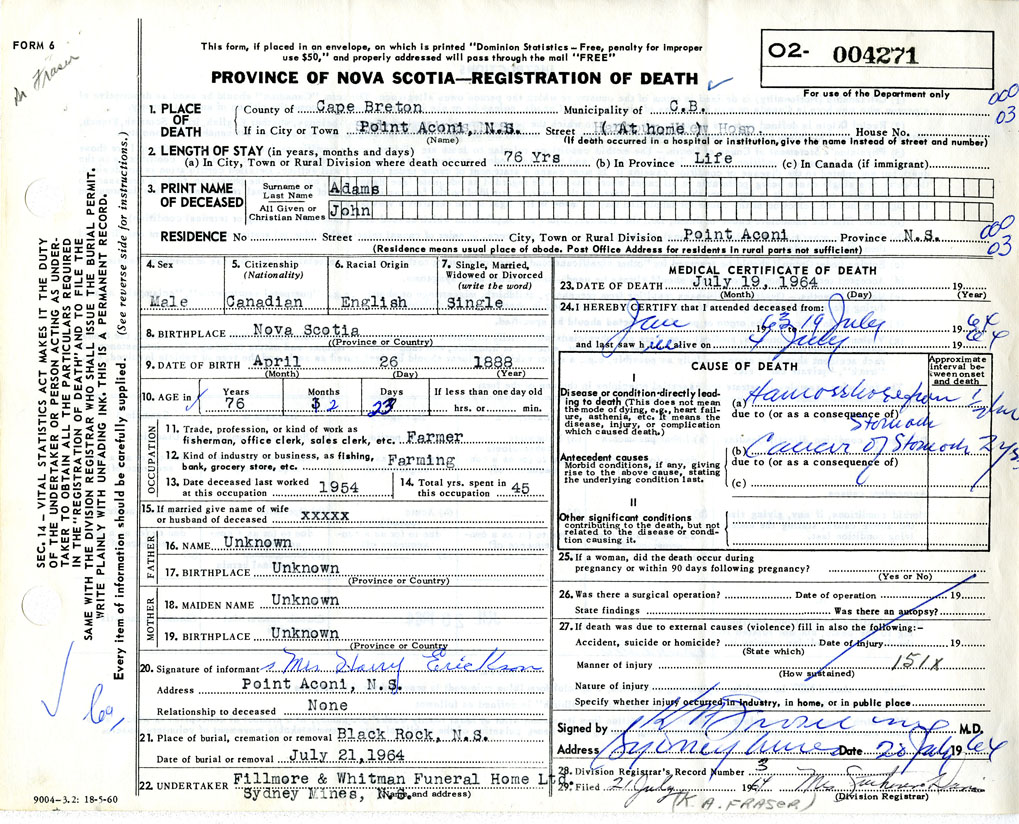 FORM 6
Dr Fraser
This form, if placed in an envelope, on which is printed "Dominion Statistics – Free, penalty for improper
use $50," and properly addressed will pass through the mail "FREE"
PROVINCE OF NOVA SCOTIA—REGISTRATION OF DEATH
O2- 004271
For use of the Department only
000
03
1. PLACE OF DEATH
County of Cape Breton Municipality of C.B.
If in City or Town Point Aconi, N.S. Street ( At home ) House No.
(Name) (If death occurred in a hospital or institution, give the name instead of street and number)
2. LENGTH OF STAY (in years, months and days)
(a) In City, Town or Rural Division where death occurred 76 Yrs (b) In Province Life (c) In Canada (if immigrant)
3. PRINT NAME OF DECEASED
Surname or Last Name Adams
All Given or Christian Names John
000
03
RESIDENCE No Street City, Town or Rural Division Point Aconi Province N.S.
(Residence means usual place of abode. Post Office Address for residents in rural parts not sufficient)
4. Sex
Male
5. Citizenship (Nationality)
Canadian
6. Racial Origin
English
7. Single, Married, Widowed or Divorced (write the word)
Single
8. BIRTHPLACE Nova Scotia
(Province or Country)
9. DATE OF BIRTH April 26 1888
(Month) (Day) (Year)
10. AGE in Years Months Days If less than one day old
76 2 23 hrs. or min.
OCCUPATION
11. Trade, profession, or kind of work as
fisherman, office clerk, sales clerk, etc. Farmer
12. Kind of industry or business, as fishing,
bank, grocery store, etc. Farming
13. Date deceased last worked at this occupation 1954
14. Total yrs. spent in this occupation 45
15. If married give name of wife
or husband of deceased xxxxx
FATHER
16. NAME Unknown
17. BIRTHPLACE Unknown
(Province or Country)
MOTHER
18. MAIDEN NAME Unknown
19. BIRTHPLACE Unknown
(Province or Country)
20. Signature of informant s Mrs Harry Erickson
Address Point Aconi, N.S.
Relationship to deceased None
21. Place of burial, cremation or removal Black Rock, N.S.
Date of burial or removal July 21,1964
22. UNDERTAKER Fillmore & Whitman Funeral Home Ltd.
Sydney Mines, N.S.
(Name and address)
MEDICAL CERTIFICATE OF DEATH
23. DATE OF DEATH July 19, 1964 19
(Month) (Day) (Year)
24. I HEREBY CERTIFY that I attended deceased from:
Jan 1963 to 19 July 1964
and last saw him alive on 4 July 1964
CAUSE OF DEATH
Approximate interval between onset and death
I
Disease or condition directly leading to death (This does not mean
the mode of dying, e.g., heart failure, asthenia, etc. It means the
disease, injury, or complication
which caused death.)
(a)
due to (or as a consequence of)
Stomach
Antecedent causes
Morbid conditions, if any, giving
rise to the above cause, stating
the underlying condition last.
(b) Cancer of Stomach 2 yrs
due to (or as a consequence of)
(c)
II
Other significant conditions
contributing to the death, but not
related to the disease or condition causing it.
25. If a woman, did the death occur during
pregnancy or within 90 days following pregnancy?
(Yes or No)
26. Was there a surgical operation? Date of operation 19
State findings Was there an autopsy?
27. If death was due to external causes (violence) fill in also the following:–
Accident, suicide or homicide? Date of injury 19
(State which)
Manner of injury 151x
(How sustained)
Nature of injury
Specify whether injury occurred in industry, in home, or in public place
Signed by M.D.
Address Sydney Mines Date 20 July 1964
28. Division Registrar's Record Number 3
29. Filed 21 July 1964 Mrs
(Division Registrar)
(K. A. FRASER)
SEC. 14 – VITAL STATISTICS ACT MAKES IT THE DUTY
OF THE UNDERTAKER OR PERSON ACTING AS UNDER-
TAKER TO OBTAIN ALL THE PARTICULARS REQUIRED
IN THE "REGISTRATION OF DEATH" AND TO FILE THE
SAME WITH THE DIVISION REGISTRAR WHO SHALL ISSUE THE BURIAL PERMIT.
WRITE PLAINLY WITH UNFADING INK. THIS IS A PERMANENT RECORD.
Every item of information should be carefully supplied. (See reverse side for instructions.)
9004-3.2: 18-5-60